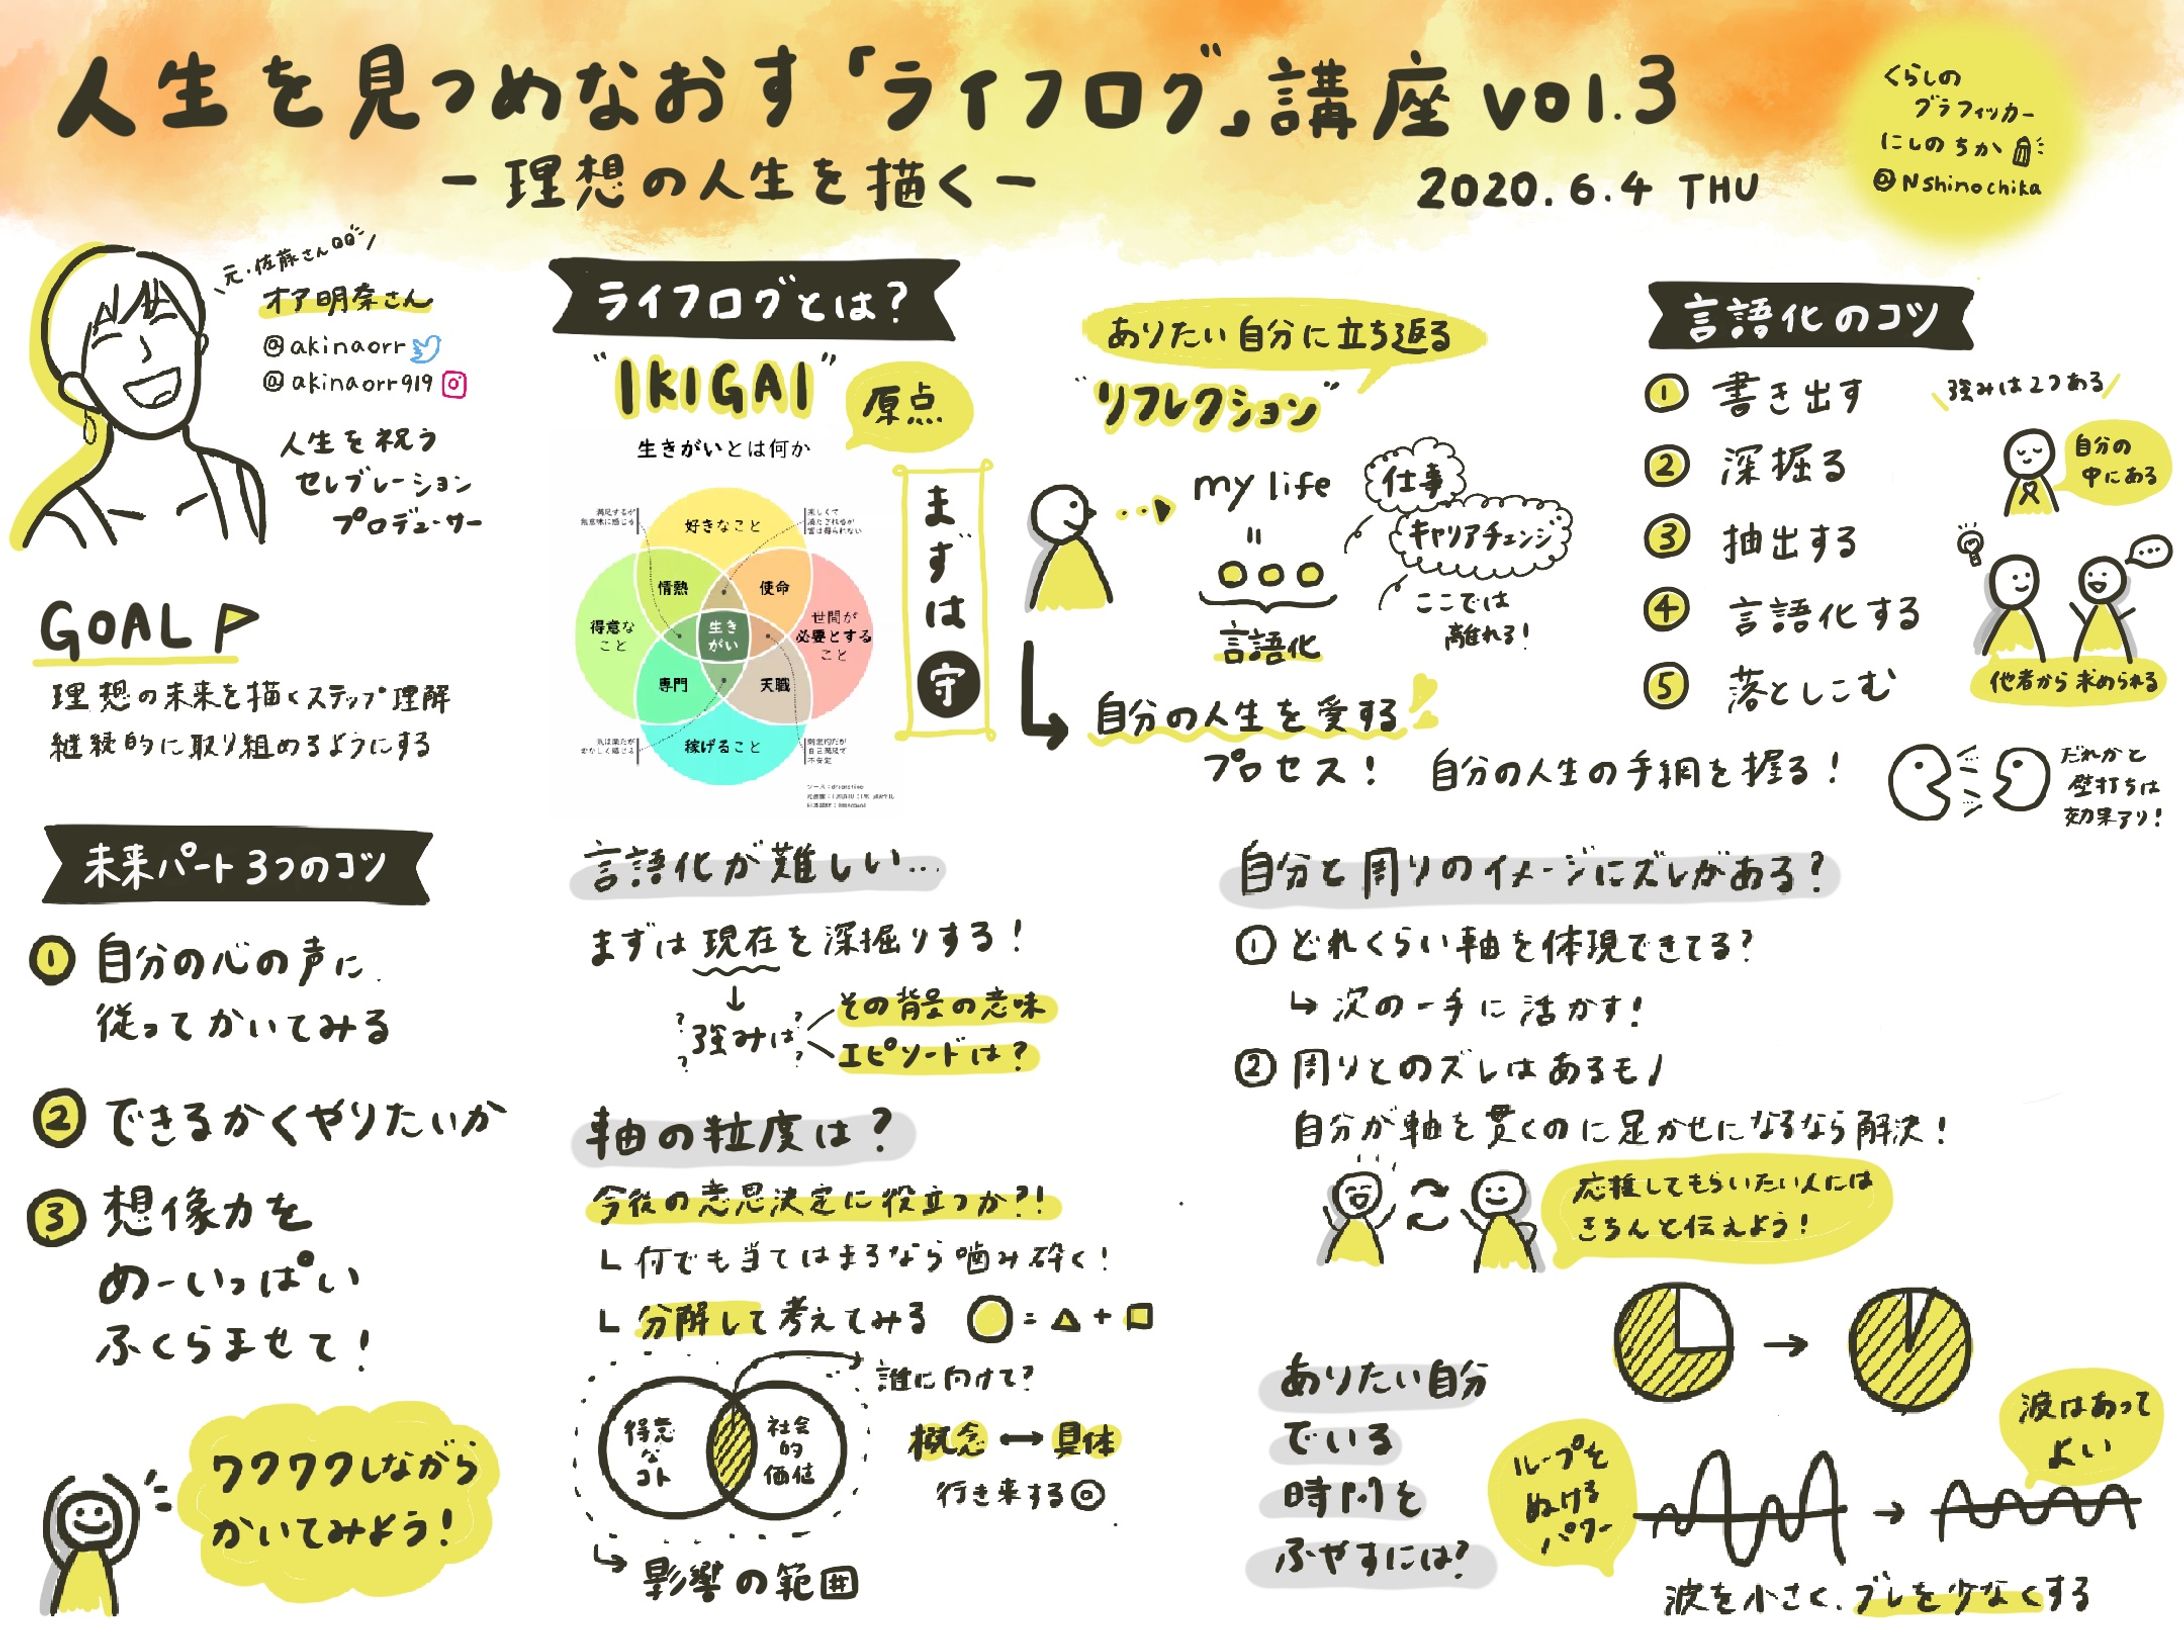 人生を見つめなおす「ライフログ」講座 vol.3
－理想の人生を描く－
2020.6.4 THU
くらしの
グラフィッカー
にしのちか
@Nshinochika
元・佐藤さん
オア明奈さん
@akinaorr
@akinaorr919
人生を祝う
セレブレーション
プロデューサー
GOAL
理想の未来を描くステップ理解
継続的に取り組めるようにする
未来パート3つのコツ
① 自分の心の声に
従ってかいてみる
② できるかくやりたいか
③ 想像力を
めーいっぱい
ふくらませて!
ワクワクしながら
かいてみよう!
ライフログとは?
"IKIGAI"
原点
生きがいとは何か
満足するが
無意味に感じる
楽しくて
満たされるが
富は得られない
好きなこと
情熱
使命
得意な
こと
生き
がい
世間が
必要とする
こと
専門
天職
稼げること
まずは守
ありたい自分に立ち返る
"リフレクション"
my life
=
○○○
言語化
仕事
キャリアチェンジ
ここでは
離れる!
自分の人生を愛する
プロセス! 自分の人生の手綱を握る!
言語化のコツ
① 書き出す
② 深掘る
③ 抽出する
④ 言語化する
⑤ 落としこむ
強みは2つある
自分の
中にある
他者から求められる
だれかと
壁打ちは
効果アリ!
言語化が難しい…
まずは現在を深掘りする!
↓
強みは
その背景の意味
エピソードは?
軸の粒度は?
今後の意思決定に役立つか?!
└ 何でも当てはまるなら噛み砕く!
└ 分解して考えてみる ○=△+□
誰に向けて?
得意
な
コト
社会
的
価値
概念 ↔ 具体
行き来する◎
影響の範囲
自分と周りのイメージにズレがある?
① どれくらい軸を体現できてる?
↳ 次の一手に活かす!
② 周りとのズレはあるモノ
自分が軸を貫くのに足かせになるなら解決!
応援してもらいたい人には
きちんと伝えよう!
ありたい自分
でいる
時間を
ふやすには?
ループを
ぬける
パワー
波はあって
よい
波を小さく、ブレを少なくする